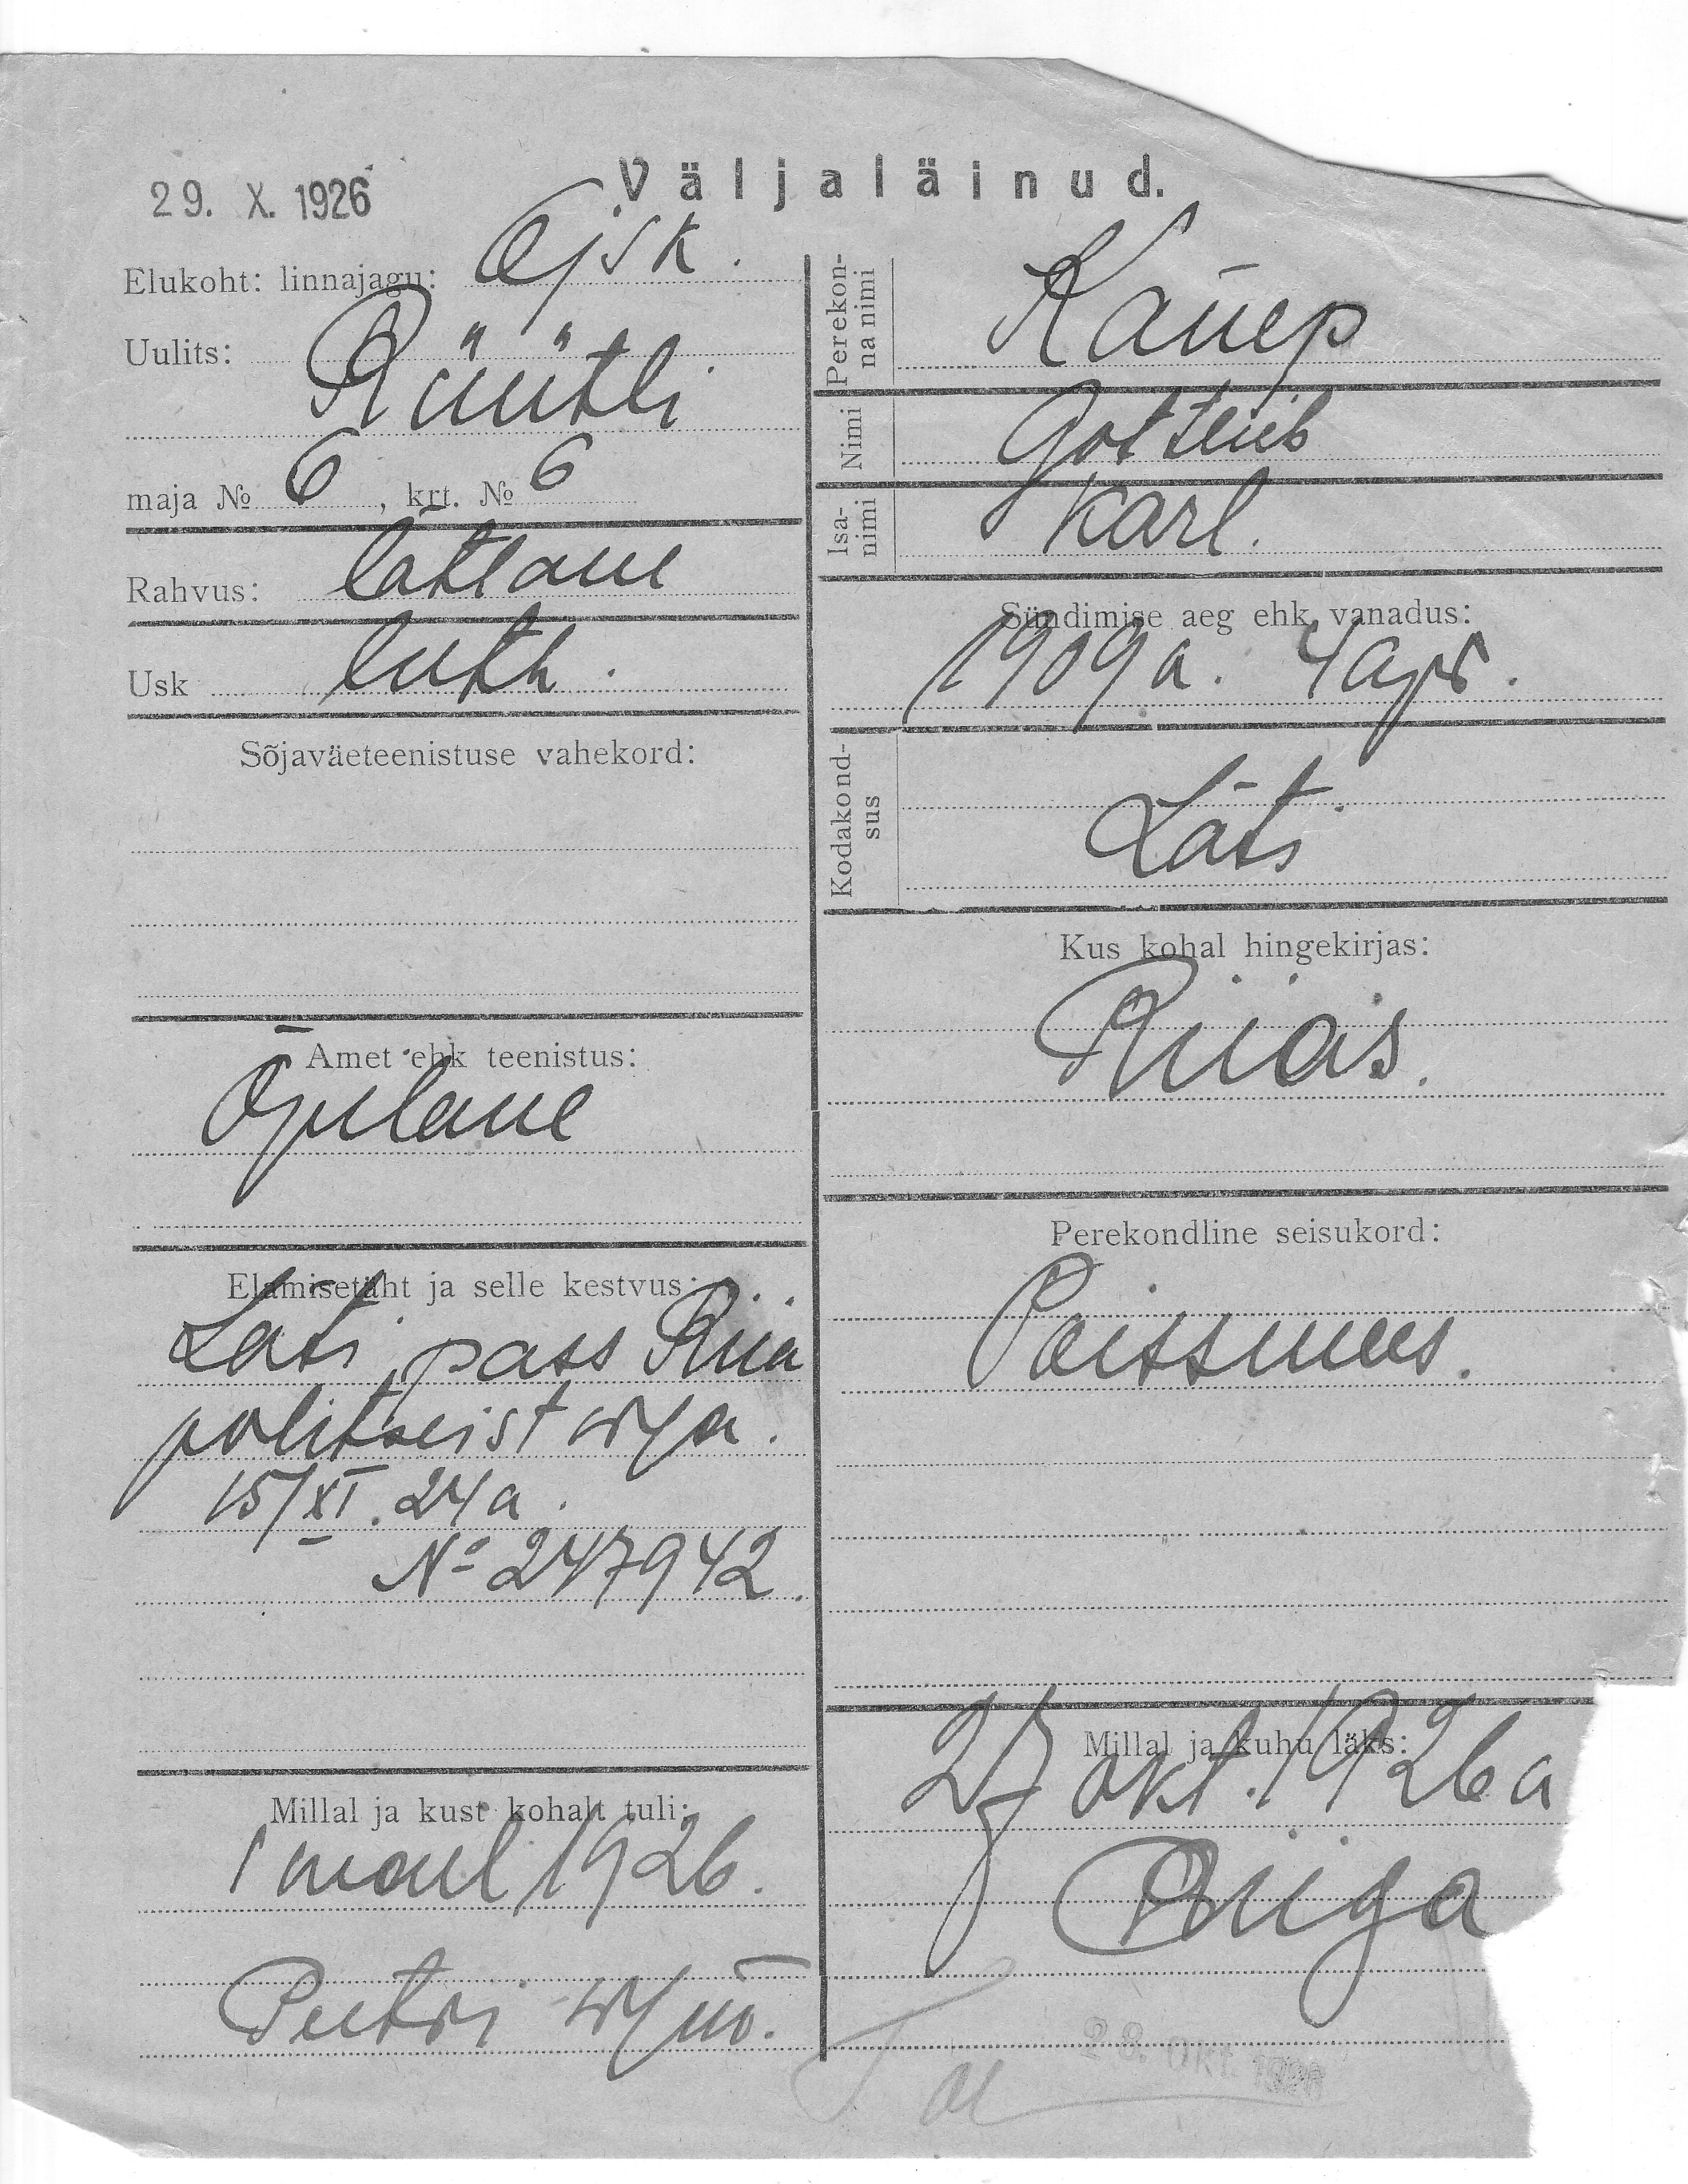 29. X. 1926
Väljaläinud.
Elukoht: linnajagu:
Uulits: Rüütli
maja № 6, krt. № 6
Rahvus: lätlane
Usk luth.
Sõjaväeteenistuse vahekord:
Amet ehk teenistus:
Õpilane
Elamisetäht ja selle kestvus:
Läti pass Riia
politseist w/a.
15/XI. 24 a.
№ 247942.
Millal ja kust kohalt tuli:
1926.
Peetri
Perekonna nimi
Nimi Gottlieb
Isanimi Karl.
Sündimise aeg ehk vanadus:
1909 a. 4 apr.
Kodakondsus Läti
Kus kohal hingekirjas:
Riias.
Perekondline seisukord:
Poissmees.
Millal ja kuhu läks:
27 okt. 1926 a
Riiga
28. OKT. 1926